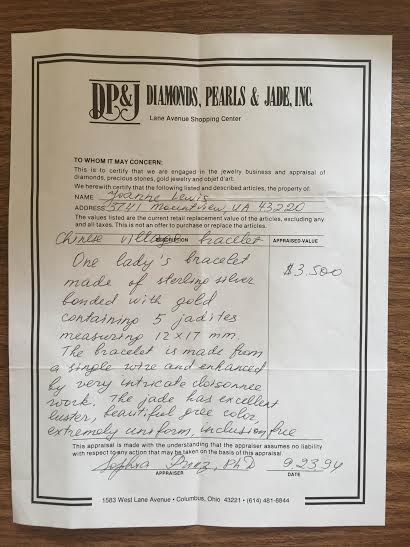 DP&J DIAMONDS, PEARLS & JADE, INC.
Lane Avenue Shopping Center
TO WHOM IT MAY CONCERN:
This is to certify that we are engaged in the jewelry business and appraisal of
diamonds, precious stones, gold jewelry and objet d'art.
We herewith certify that the following listed and described articles, the property of:
NAME Joanne Lewis
ADDRESS Mountview, UA 43220
The values listed are the current retail replacement value of the articles, excluding any
and all taxes. This is not an offer to purchase or replace the articles.
Chinese village bracelet APPRAISED VALUE
One lady's bracelet $3.500
made of sterling silver
bonded with gold
containing 5 jadites
measuring 12x17 mm.
The bracelet is made from
a single wire and enhanced
by very intricate cloisonnee
work. The jade has excellent
luster, beautiful color,
extremely uniform, inclusion free
This appraisal is made with the understanding that the appraiser assumes no liability
with respect to any action that may be taken on the basis of this appraisal.
PhD 9,23,94
APPRAISER DATE
1583 West Lane Avenue • Columbus, Ohio 43221 • (614) 481-8844